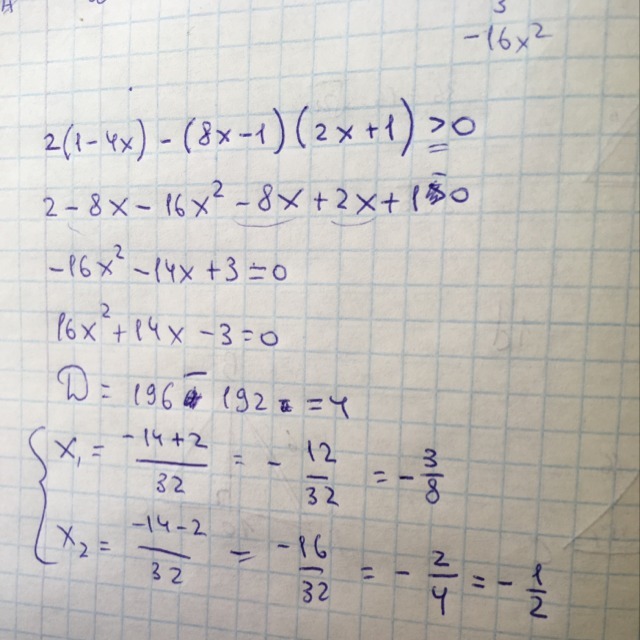 3
-16x²
2(1-4x) - (8x-1)(2x+1) ≥ 0
2 - 8x - 16x² - 8x + 2x + 1 0
-16x² - 14x + 3 = 0
16x² + 14x - 3 = 0
D = 196 - 192 = 4
x₁ = (-14+2)/32 = - 12/32 = - 3/8
x₂ = (-14-2)/32 = -16/32 = - 2/4 = - 1/2